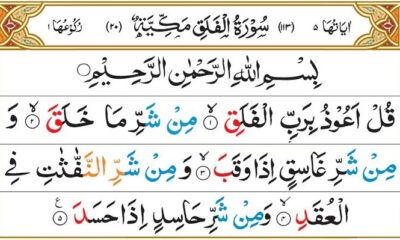 اٰيَاتُهَا ٥ (١١٣) سُوْرَةُ الْفَلَقِ مَكِّيَّةٌ (٢٠) رُكُوْعُهَا ١
بِسْمِ اللّٰهِ الرَّحْمٰنِ الرَّحِيْمِ
قُلْ اَعُوْذُ بِرَبِّ الْفَلَقِ ۙ‏﴿١﴾ مِنْ شَرِّ مَا خَلَقَ ۙ‏﴿٢﴾ وَ
مِنْ شَرِّ غَاسِقٍ اِذَا وَقَبَ ۙ‏﴿٣﴾ وَ مِنْ شَرِّ النَّفّٰثٰتِ فِي
الْعُقَدِ ۙ‏﴿٤﴾ وَمِنْ شَرِّ حَاسِدٍ اِذَا حَسَدَ ﴿٥﴾ ع